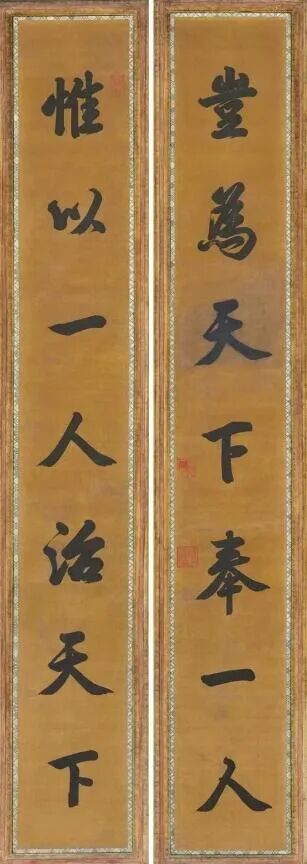 豈爲天下奉一人
惟以一人治天下